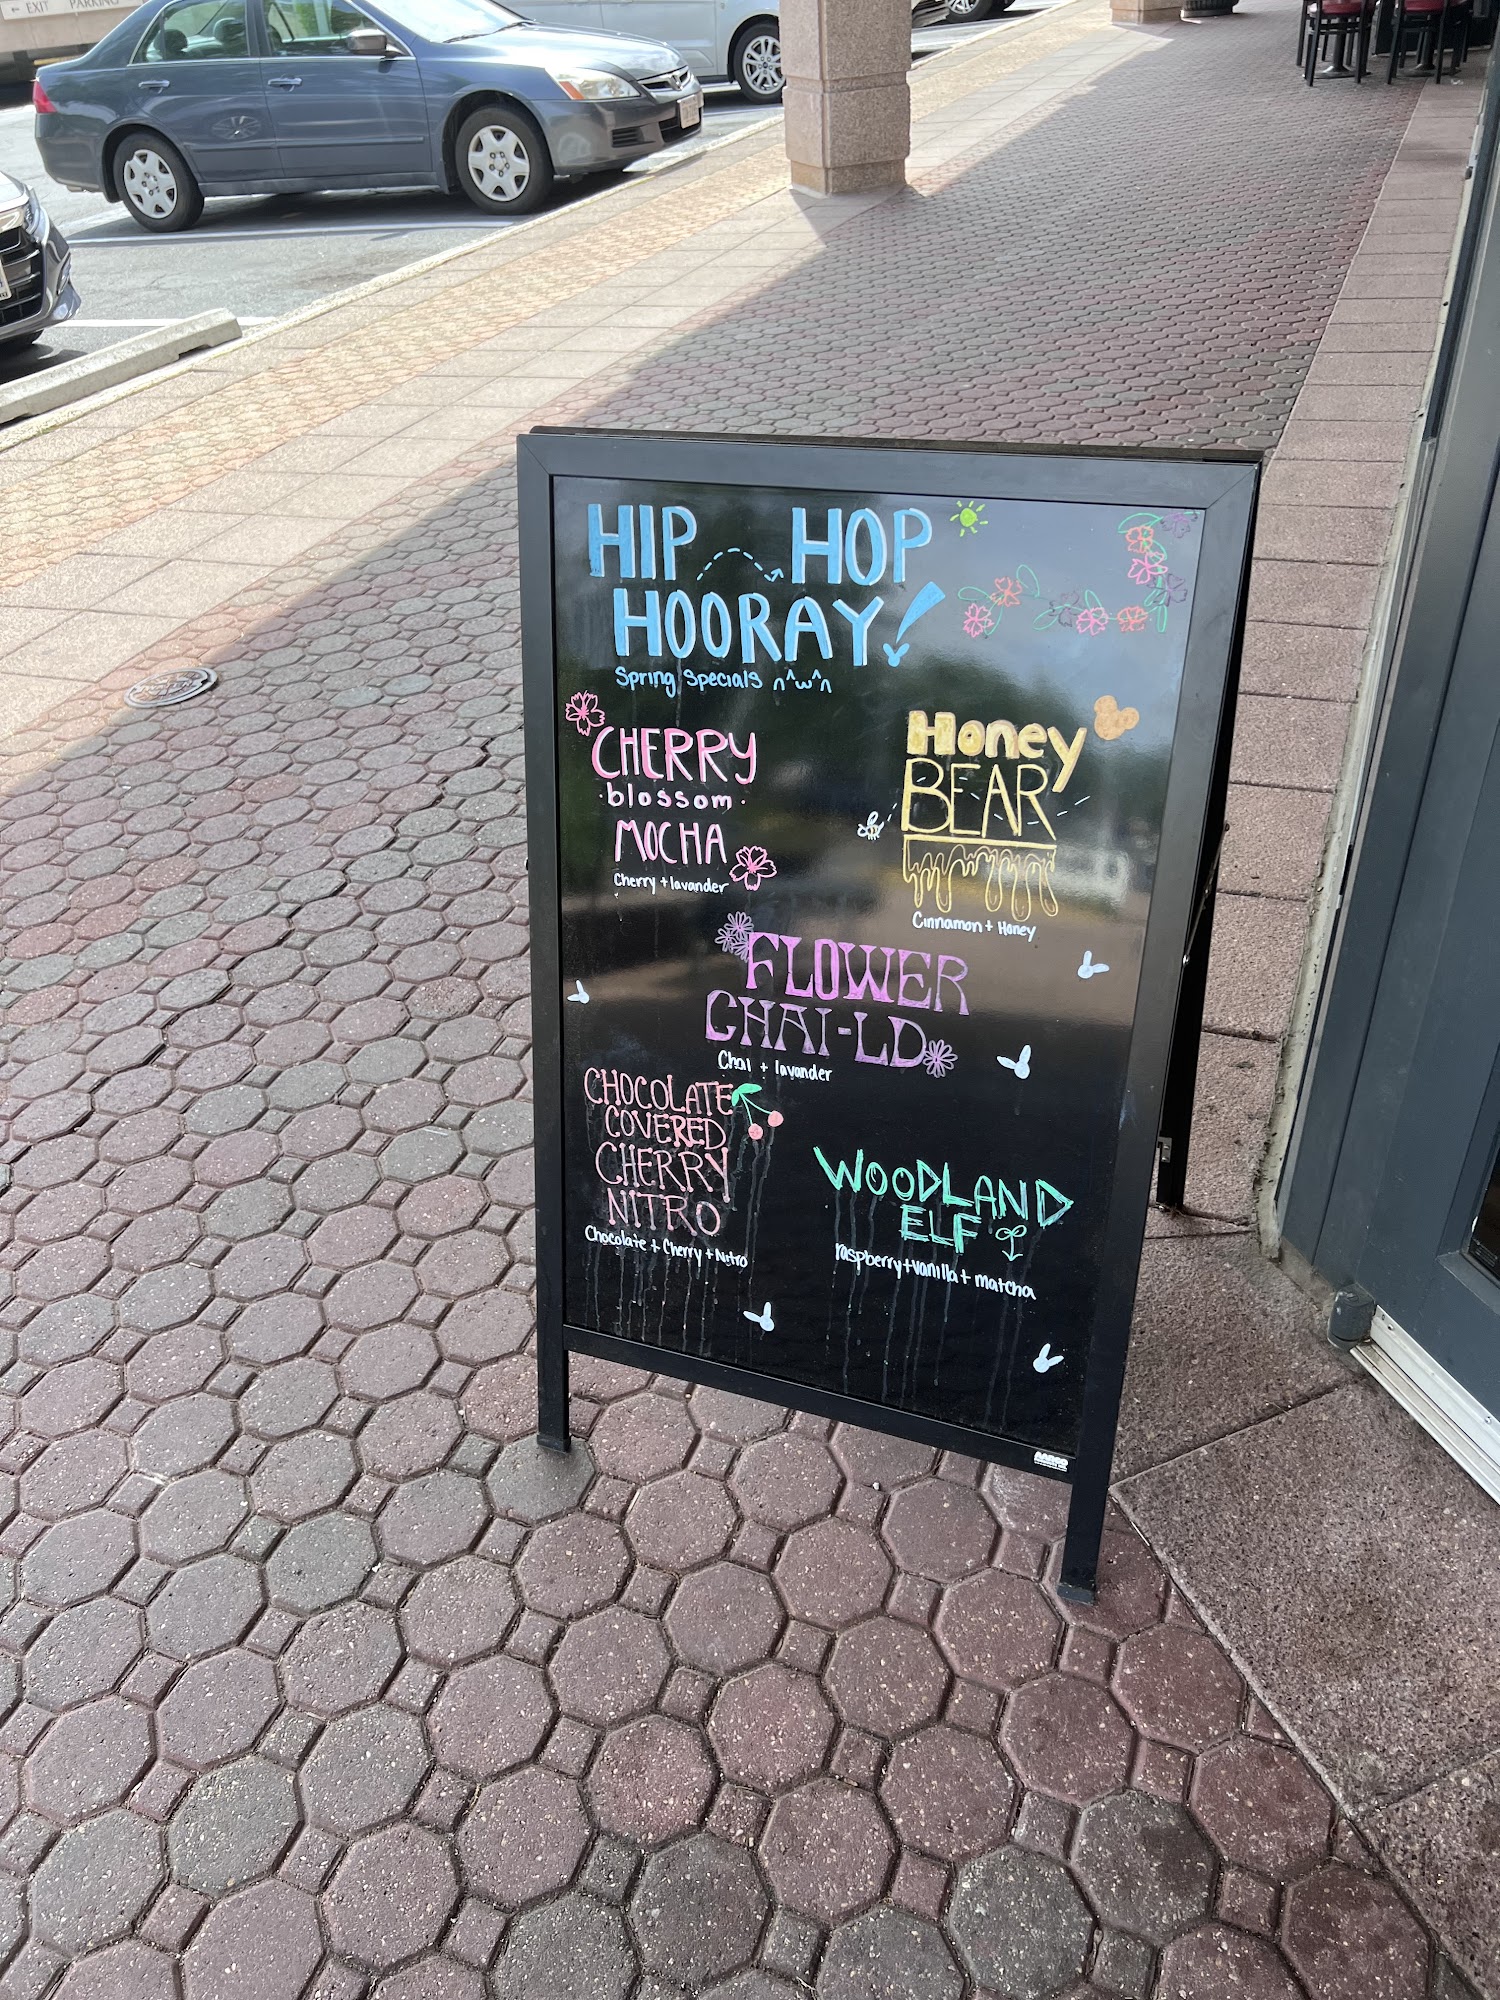 EXIT PARKING
HIP HOP
HOORAY!
Spring Specials n^w^n
CHERRY
·blossom·
MOCHA
Cherry + lavander
Honey
BEAR
Cinnamon + Honey
FLOWER
CHAI-LD
Chai + lavander
CHOCOLATE
COVERED
CHERRY
NITRO
Chocolate + Cherry + Nitro
WOODLAND
ELF
raspberry + vanilla + matcha